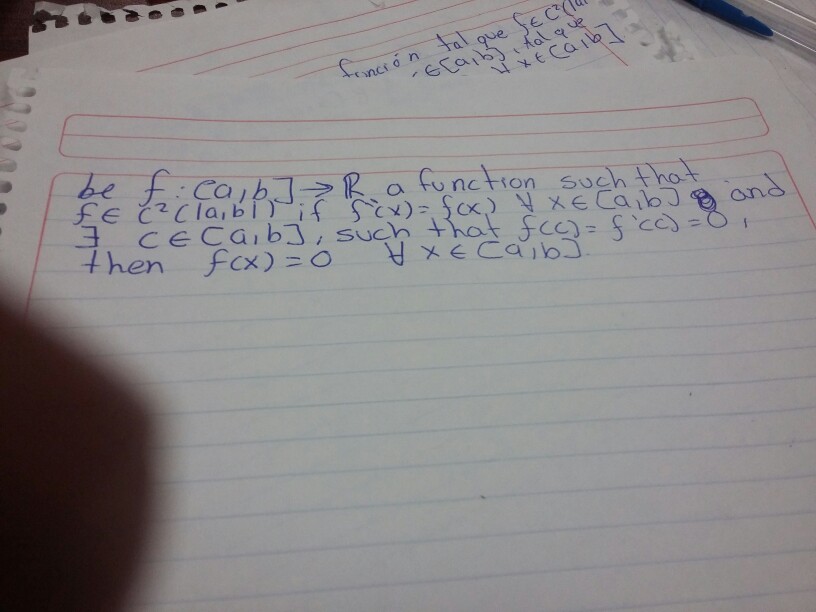 función tal que f ∈ C²([a
∈ [a,b], tal que
∀ x ∈ [a,b]
be f : [a,b] → ℝ a function such that
f ∈ C²([a,b]) if f''(x) = f(x) ∀ x ∈ [a,b] and
∃ c ∈ [a,b], such that f(c) = f'(c) = 0,
then f(x) = 0 ∀ x ∈ [a,b].